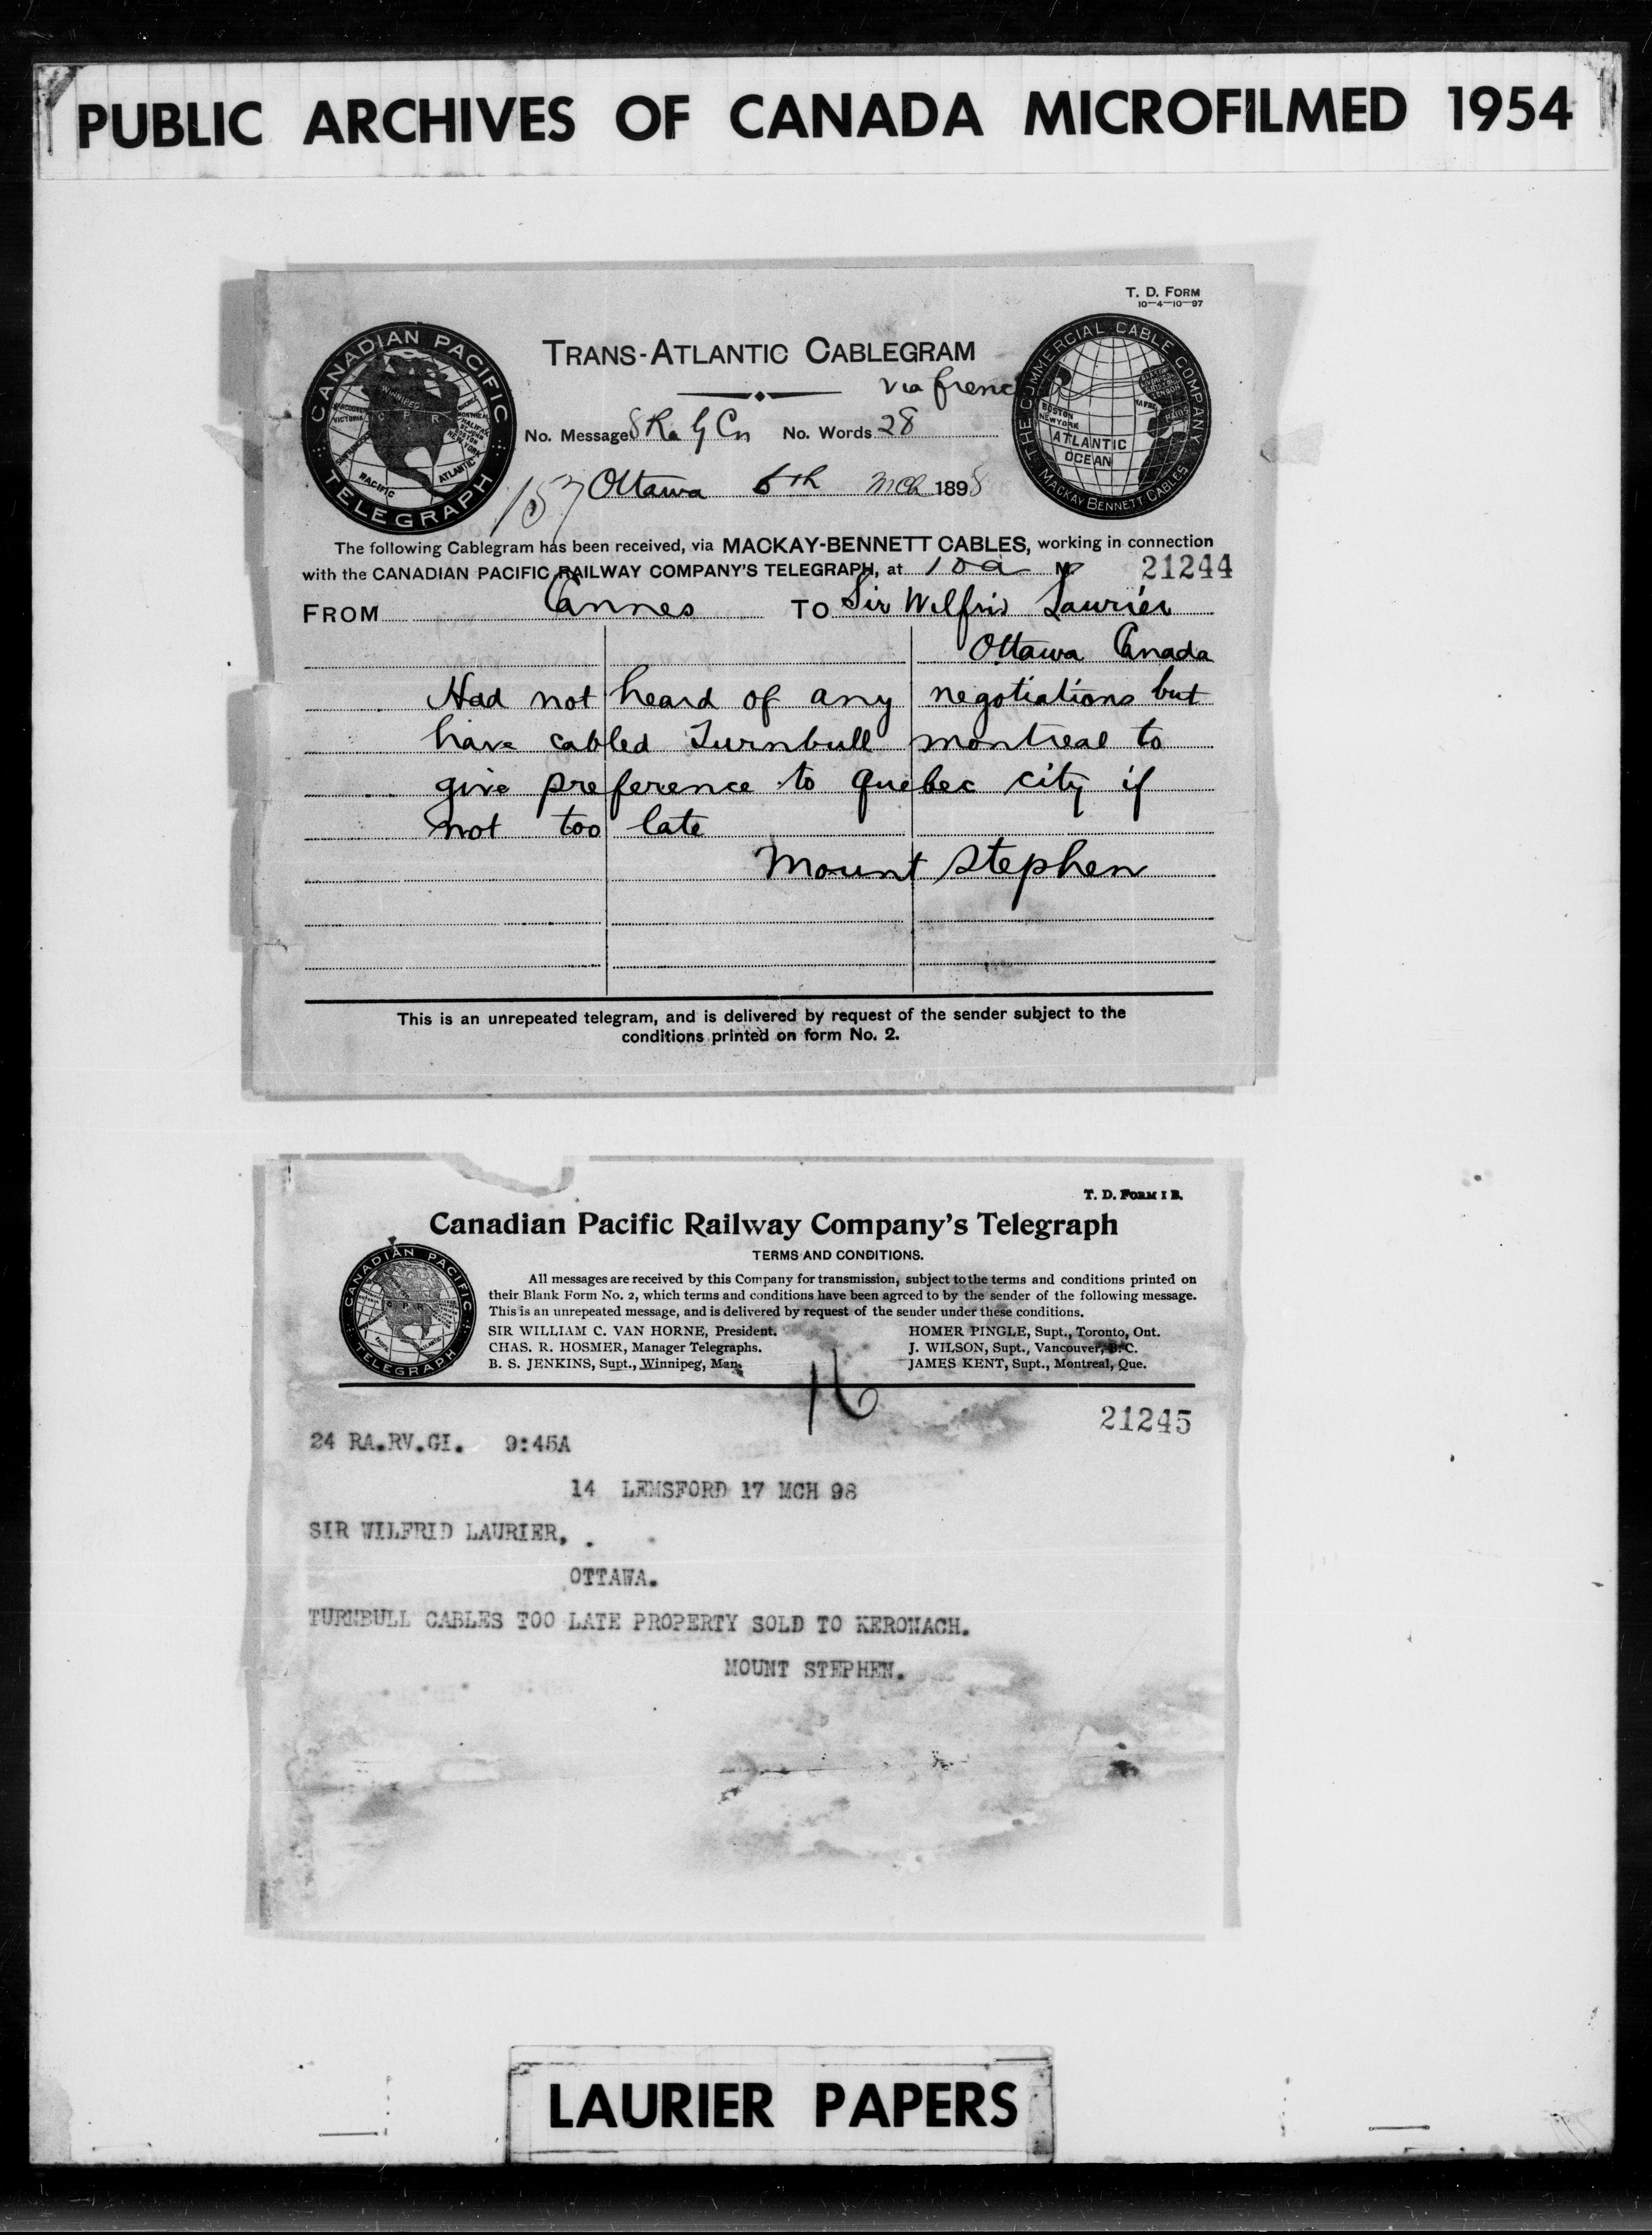 PUBLIC ARCHIVES OF CANADA MICROFILMED 1954
T. D. FORM
10-4-10-97
CANADIAN PACIFIC TELEGRAPH
THE COMMERCIAL CABLE COMPANY
MACKAY BENNETT CABLES
ATLANTIC
OCEAN
TRANS-ATLANTIC CABLEGRAM
via french
No. Message No. Words 28
157 Ottawa 6th Mch 1898
The following Cablegram has been received, via MACKAY-BENNETT CABLES, working in connection
with the CANADIAN PACIFIC RAILWAY COMPANY'S TELEGRAPH, at 10 a M
21244
FROM Cannes TO Sir Wilfrid Laurier
Ottawa Canada
Had not heard of any negotiations but
have cabled Turnbull montreal to
give preference to quebec city if
not too late
Mount Stephen
This is an unrepeated telegram, and is delivered by request of the sender subject to the
conditions printed on form No. 2.
T. D. FORM 1 B.
Canadian Pacific Railway Company's Telegraph
CANADIAN PACIFIC TELEGRAPH
TERMS AND CONDITIONS.
All messages are received by this Company for transmission, subject to the terms and conditions printed on
their Blank Form No. 2, which terms and conditions have been agreed to by the sender of the following message.
This is an unrepeated message, and is delivered by request of the sender under these conditions.
SIR WILLIAM C. VAN HORNE, President. HOMER PINGLE, Supt., Toronto, Ont.
CHAS. R. HOSMER, Manager Telegraphs. J. WILSON, Supt., Vancouver, B.C.
B. S. JENKINS, Supt., Winnipeg, Man. JAMES KENT, Supt., Montreal, Que.
16
21245
24 RA.RV.GI. 9:45A
14 LEMSFORD 17 MCH 98
SIR WILFRID LAURIER,
OTTAWA.
TURNBULL CABLES TOO LATE PROPERTY SOLD TO KERONACH.
MOUNT STEPHEN.
LAURIER PAPERS